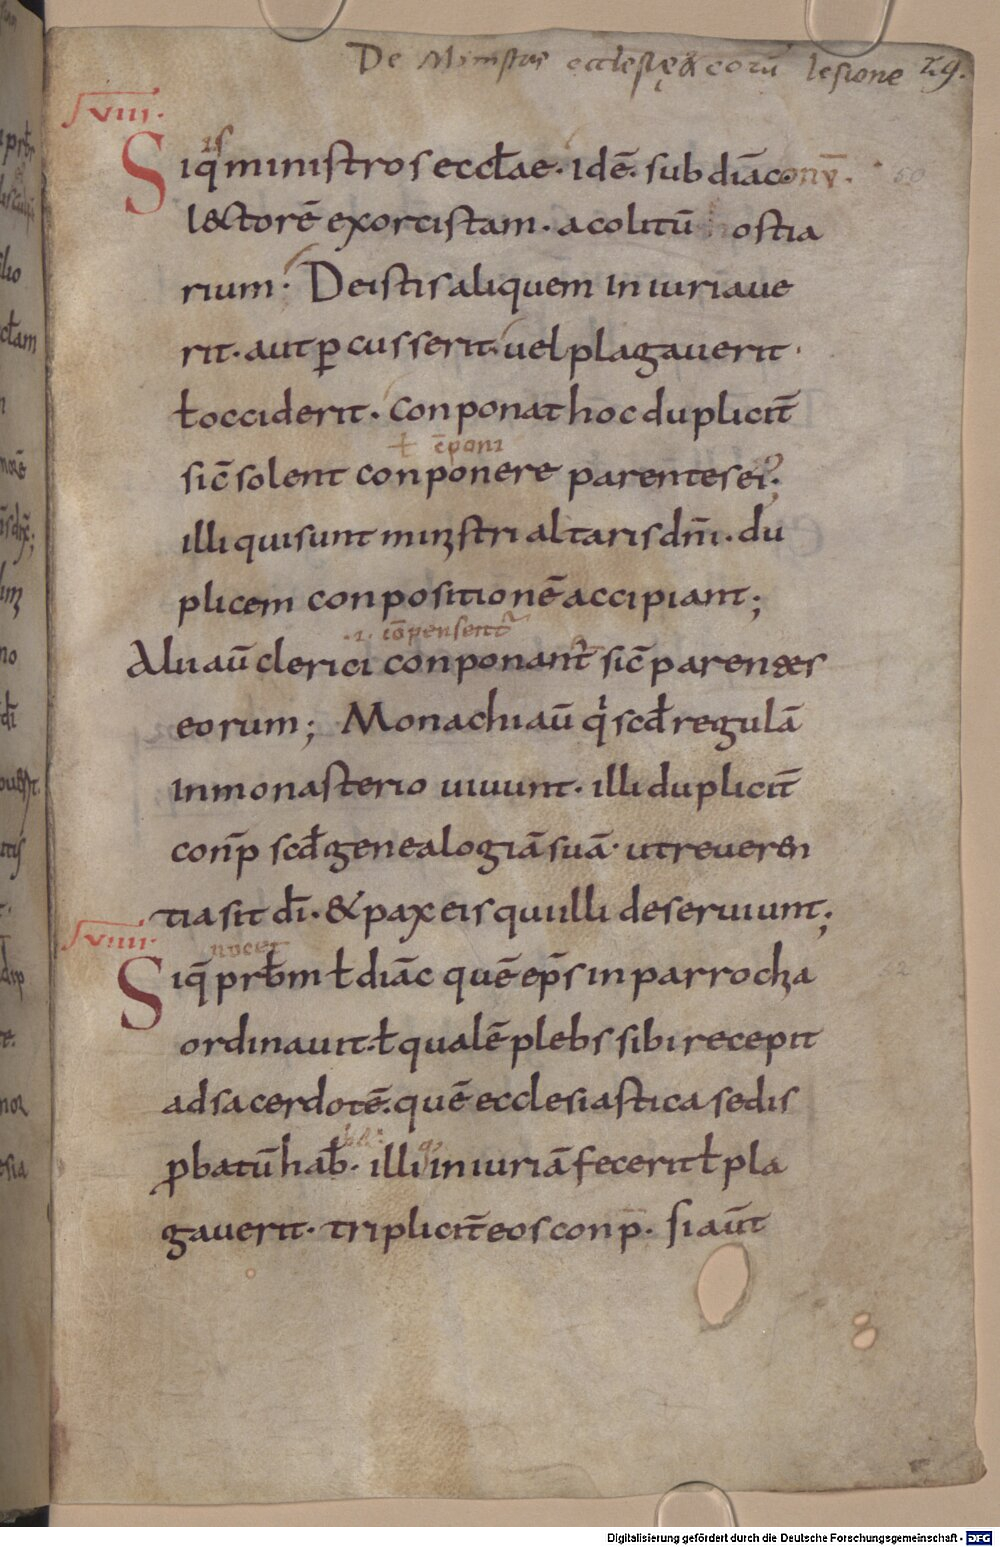 De Ministris ecclesię & eorū lesione 29.
VIII.
is
Siq̄ ministros eccƚae. idē. sub diāconv̄.
l&torē exorcistam. acolitū ostia
rium. De istis aliquem iniuriaue
rit. aut ꝑcusserit. uel plagauerit.
ƚ occiderit. conponat hoc duplicit̄
ƚ c̄poni
sic̄ solent conponere parentes ei?
illi qui sunt minꝫstri altaris dn̄i. du
plicem conpositionē accipiant;
.i. cōpensent᷑
Alii aū clerici conponant᷑ sic̄ paren&es
eorum; Monachi aū qͥ scd̄ regulā
in monasterio uiuunt. illi duplicit̄
con̄p scd̄ genealogiā suā. ut reueren
tia sit dī. & pax eis qui illi deseruiunt;
VIIII.
nocet
Siq̄ prb̄m ƚ diāc quē ep̄s in parrochia
ordinauit. ƚ qualē plebs sibi recepit
ad sacerdotē. quē ecclesiastica sedis
ꝓbatū hab̄. illi iniuriā fecerit ƚ pla
gauerit. triplicit̄ eos conp̄. si aūt
Digitalisierung gefördert durch die Deutsche Forschungsgemeinschaft - DFG